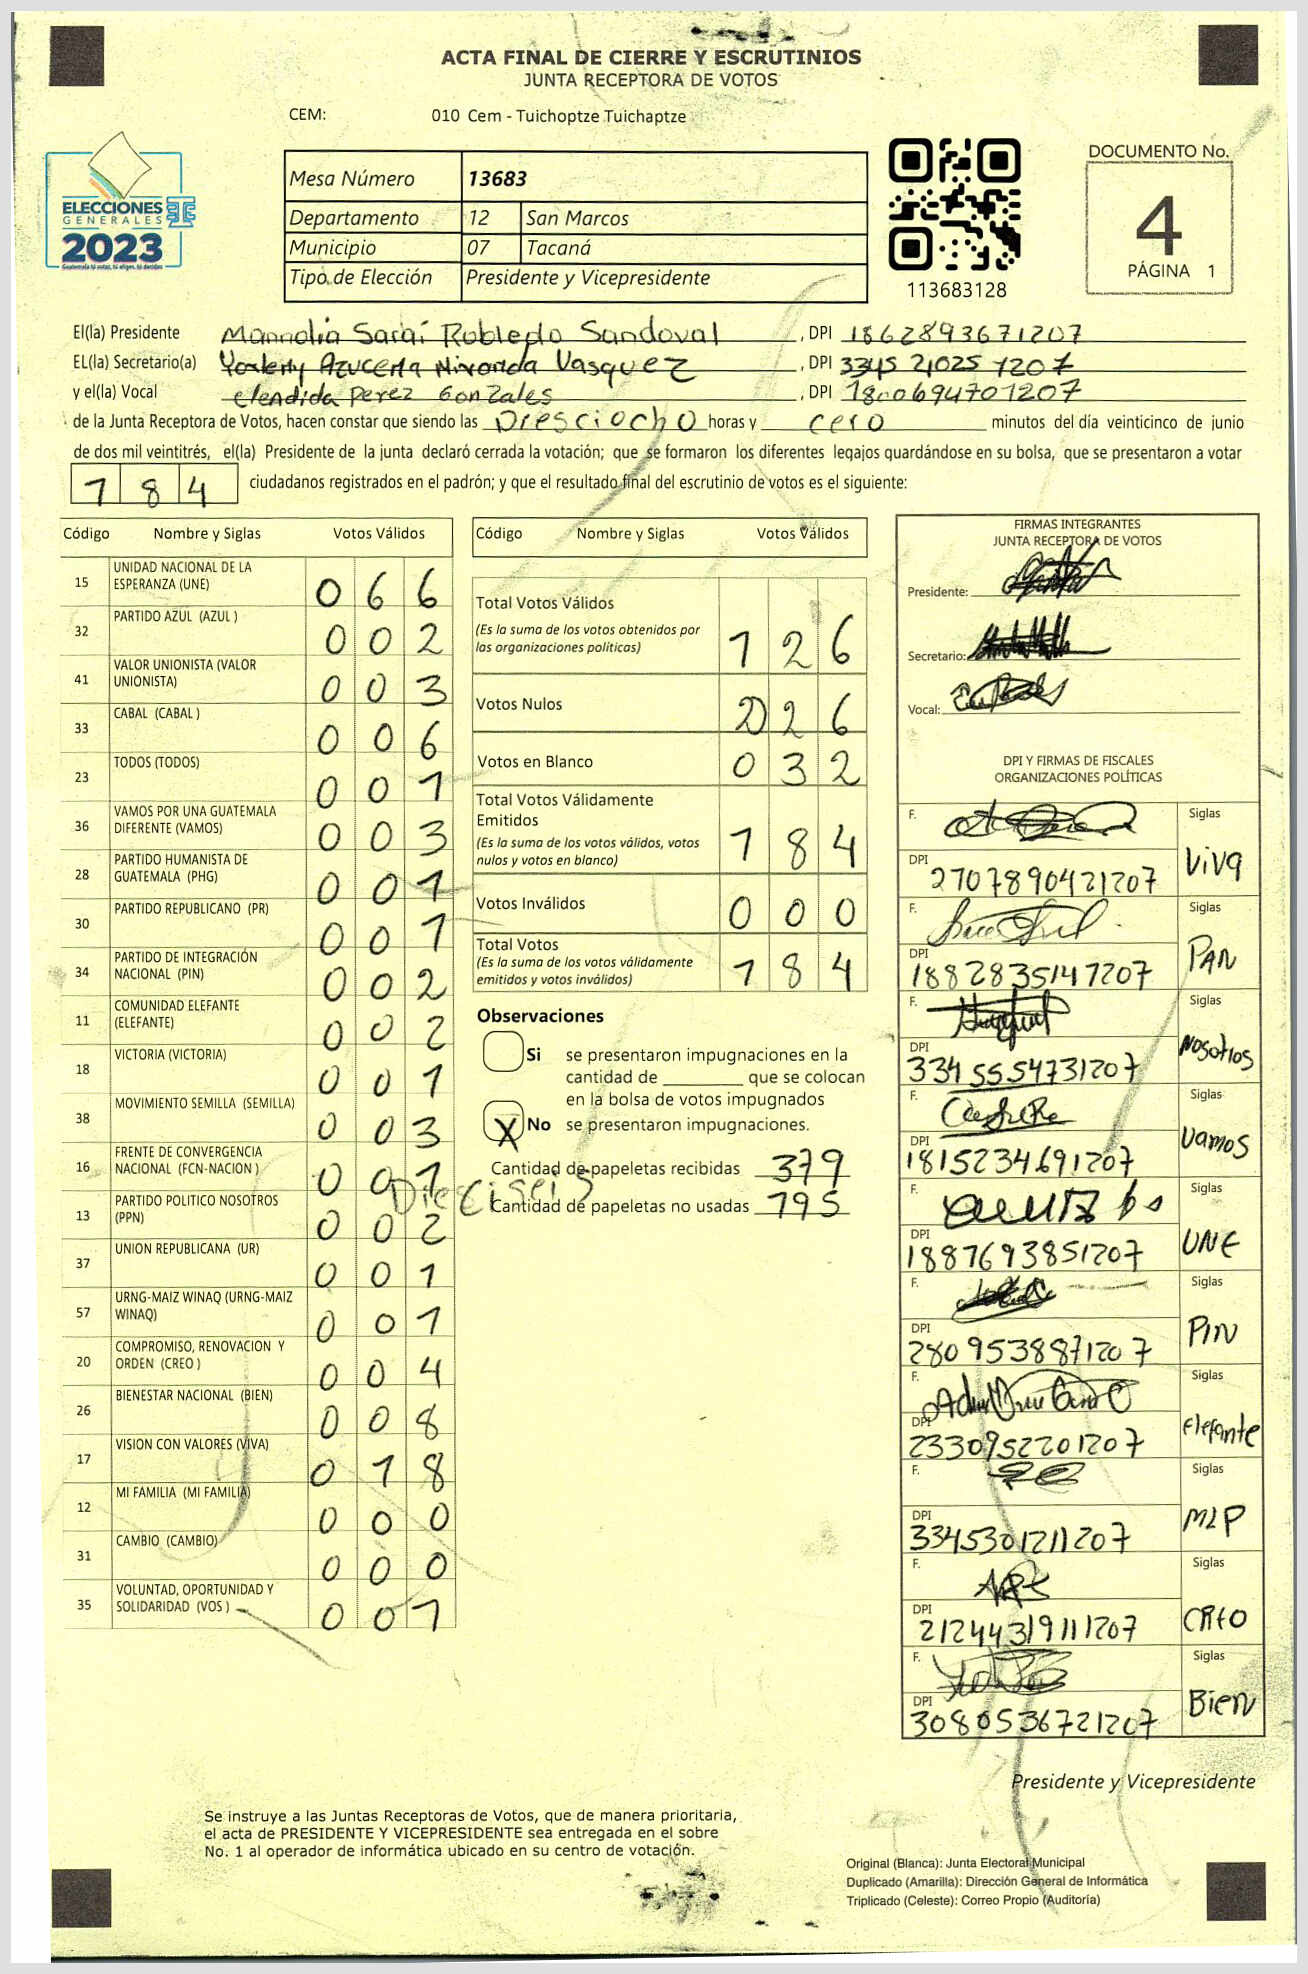 ACTA FINAL DE CIERRE Y ESCRUTINIOS
JUNTA RECEPTORA DE VOTOS
CEM: 010 Cem - Tuichoptze Tuichaptze
ELECCIONES
GENERALES
2023
Guatemala tú votas, tú eliges, tú decides
Mesa Número 13683
Departamento 12 San Marcos
Municipio 07 Tacaná
Tipo de Elección Presidente y Vicepresidente
113683128
DOCUMENTO No.
4
PÁGINA 1
El(la) Presidente Mannolia Saraí Robledo Sandoval, DPI 1862893671207
EL(la) Secretario(a) Azucena Miranda Vasquez, DPI 3345 21025 1207
y el(la) Vocal elendida Perez Gonzales, DPI 1800694701207
de la Junta Receptora de Votos, hacen constar que siendo las Diesciocho horas y cero minutos del día veinticinco de junio
de dos mil veintitrés, el(la) Presidente de la junta declaró cerrada la votación; que se formaron los diferentes legajos guardándose en su bolsa, que se presentaron a votar
184 ciudadanos registrados en el padrón; y que el resultado final del escrutinio de votos es el siguiente:
Código Nombre y Siglas Votos Válidos
15 UNIDAD NACIONAL DE LA ESPERANZA (UNE) 066
32 PARTIDO AZUL (AZUL ) 002
41 VALOR UNIONISTA (VALOR UNIONISTA) 003
33 CABAL (CABAL ) 006
23 TODOS (TODOS) 001
36 VAMOS POR UNA GUATEMALA DIFERENTE (VAMOS) 003
28 PARTIDO HUMANISTA DE GUATEMALA (PHG) 001
30 PARTIDO REPUBLICANO (PR) 001
34 PARTIDO DE INTEGRACIÓN NACIONAL (PIN) 002
11 COMUNIDAD ELEFANTE (ELEFANTE) 002
18 VICTORIA (VICTORIA) 001
38 MOVIMIENTO SEMILLA (SEMILLA) 003
16 FRENTE DE CONVERGENCIA NACIONAL (FCN-NACION ) 001
Dieciseis
13 PARTIDO POLITICO NOSOTROS (PPN) 002
37 UNION REPUBLICANA (UR) 001
57 URNG-MAIZ WINAQ (URNG-MAIZ WINAQ) 001
20 COMPROMISO, RENOVACION Y ORDEN (CREO ) 004
26 BIENESTAR NACIONAL (BIEN) 008
17 VISION CON VALORES (VIVA) 018
12 MI FAMILIA (MI FAMILIA) 000
31 CAMBIO (CAMBIO) 000
35 VOLUNTAD, OPORTUNIDAD Y SOLIDARIDAD (VOS ) 001
Código Nombre y Siglas Votos Válidos
Total Votos Válidos 126
(Es la suma de los votos obtenidos por
las organizaciones políticas)
Votos Nulos 26
Votos en Blanco 032
Total Votos Válidamente
Emitidos 184
(Es la suma de los votos válidos, votos
nulos y votos en blanco)
Votos Inválidos 000
Total Votos 184
(Es la suma de los votos válidamente
emitidos y votos inválidos)
Observaciones
Si se presentaron impugnaciones en la
cantidad de ________ que se colocan
en la bolsa de votos impugnados
X No se presentaron impugnaciones.
Cantidad de papeletas recibidas 379
Cantidad de papeletas no usadas 195
FIRMAS INTEGRANTES
JUNTA RECEPTORA DE VOTOS
Presidente:
Secretario:
Vocal:
DPI Y FIRMAS DE FISCALES
ORGANIZACIONES POLÍTICAS
F. Siglas
DPI 2707890421207 VIVA
F. Siglas
DPI 1882835147207 PAN
F. Siglas
DPI 3345554731207 Nosotros
F. Siglas
DPI 1815234691207 Vamos
F. Siglas
DPI 1887693851207 UNE
F. Siglas
DPI 2809538871207 PIN
F. Siglas
DPI 2330952201207 Elefante
F. Siglas
DPI 3345301211207 MLP
F. Siglas
DPI 2124431911207 CREO
F. Siglas
DPI 3080536721207 Bien
Presidente y Vicepresidente
Se instruye a las Juntas Receptoras de Votos, que de manera prioritaria,
el acta de PRESIDENTE Y VICEPRESIDENTE sea entregada en el sobre
No. 1 al operador de informática ubicado en su centro de votación.
Original (Blanca): Junta Electoral Municipal
Duplicado (Amarilla): Dirección General de Informática
Triplicado (Celeste): Correo Propio (Auditoría)